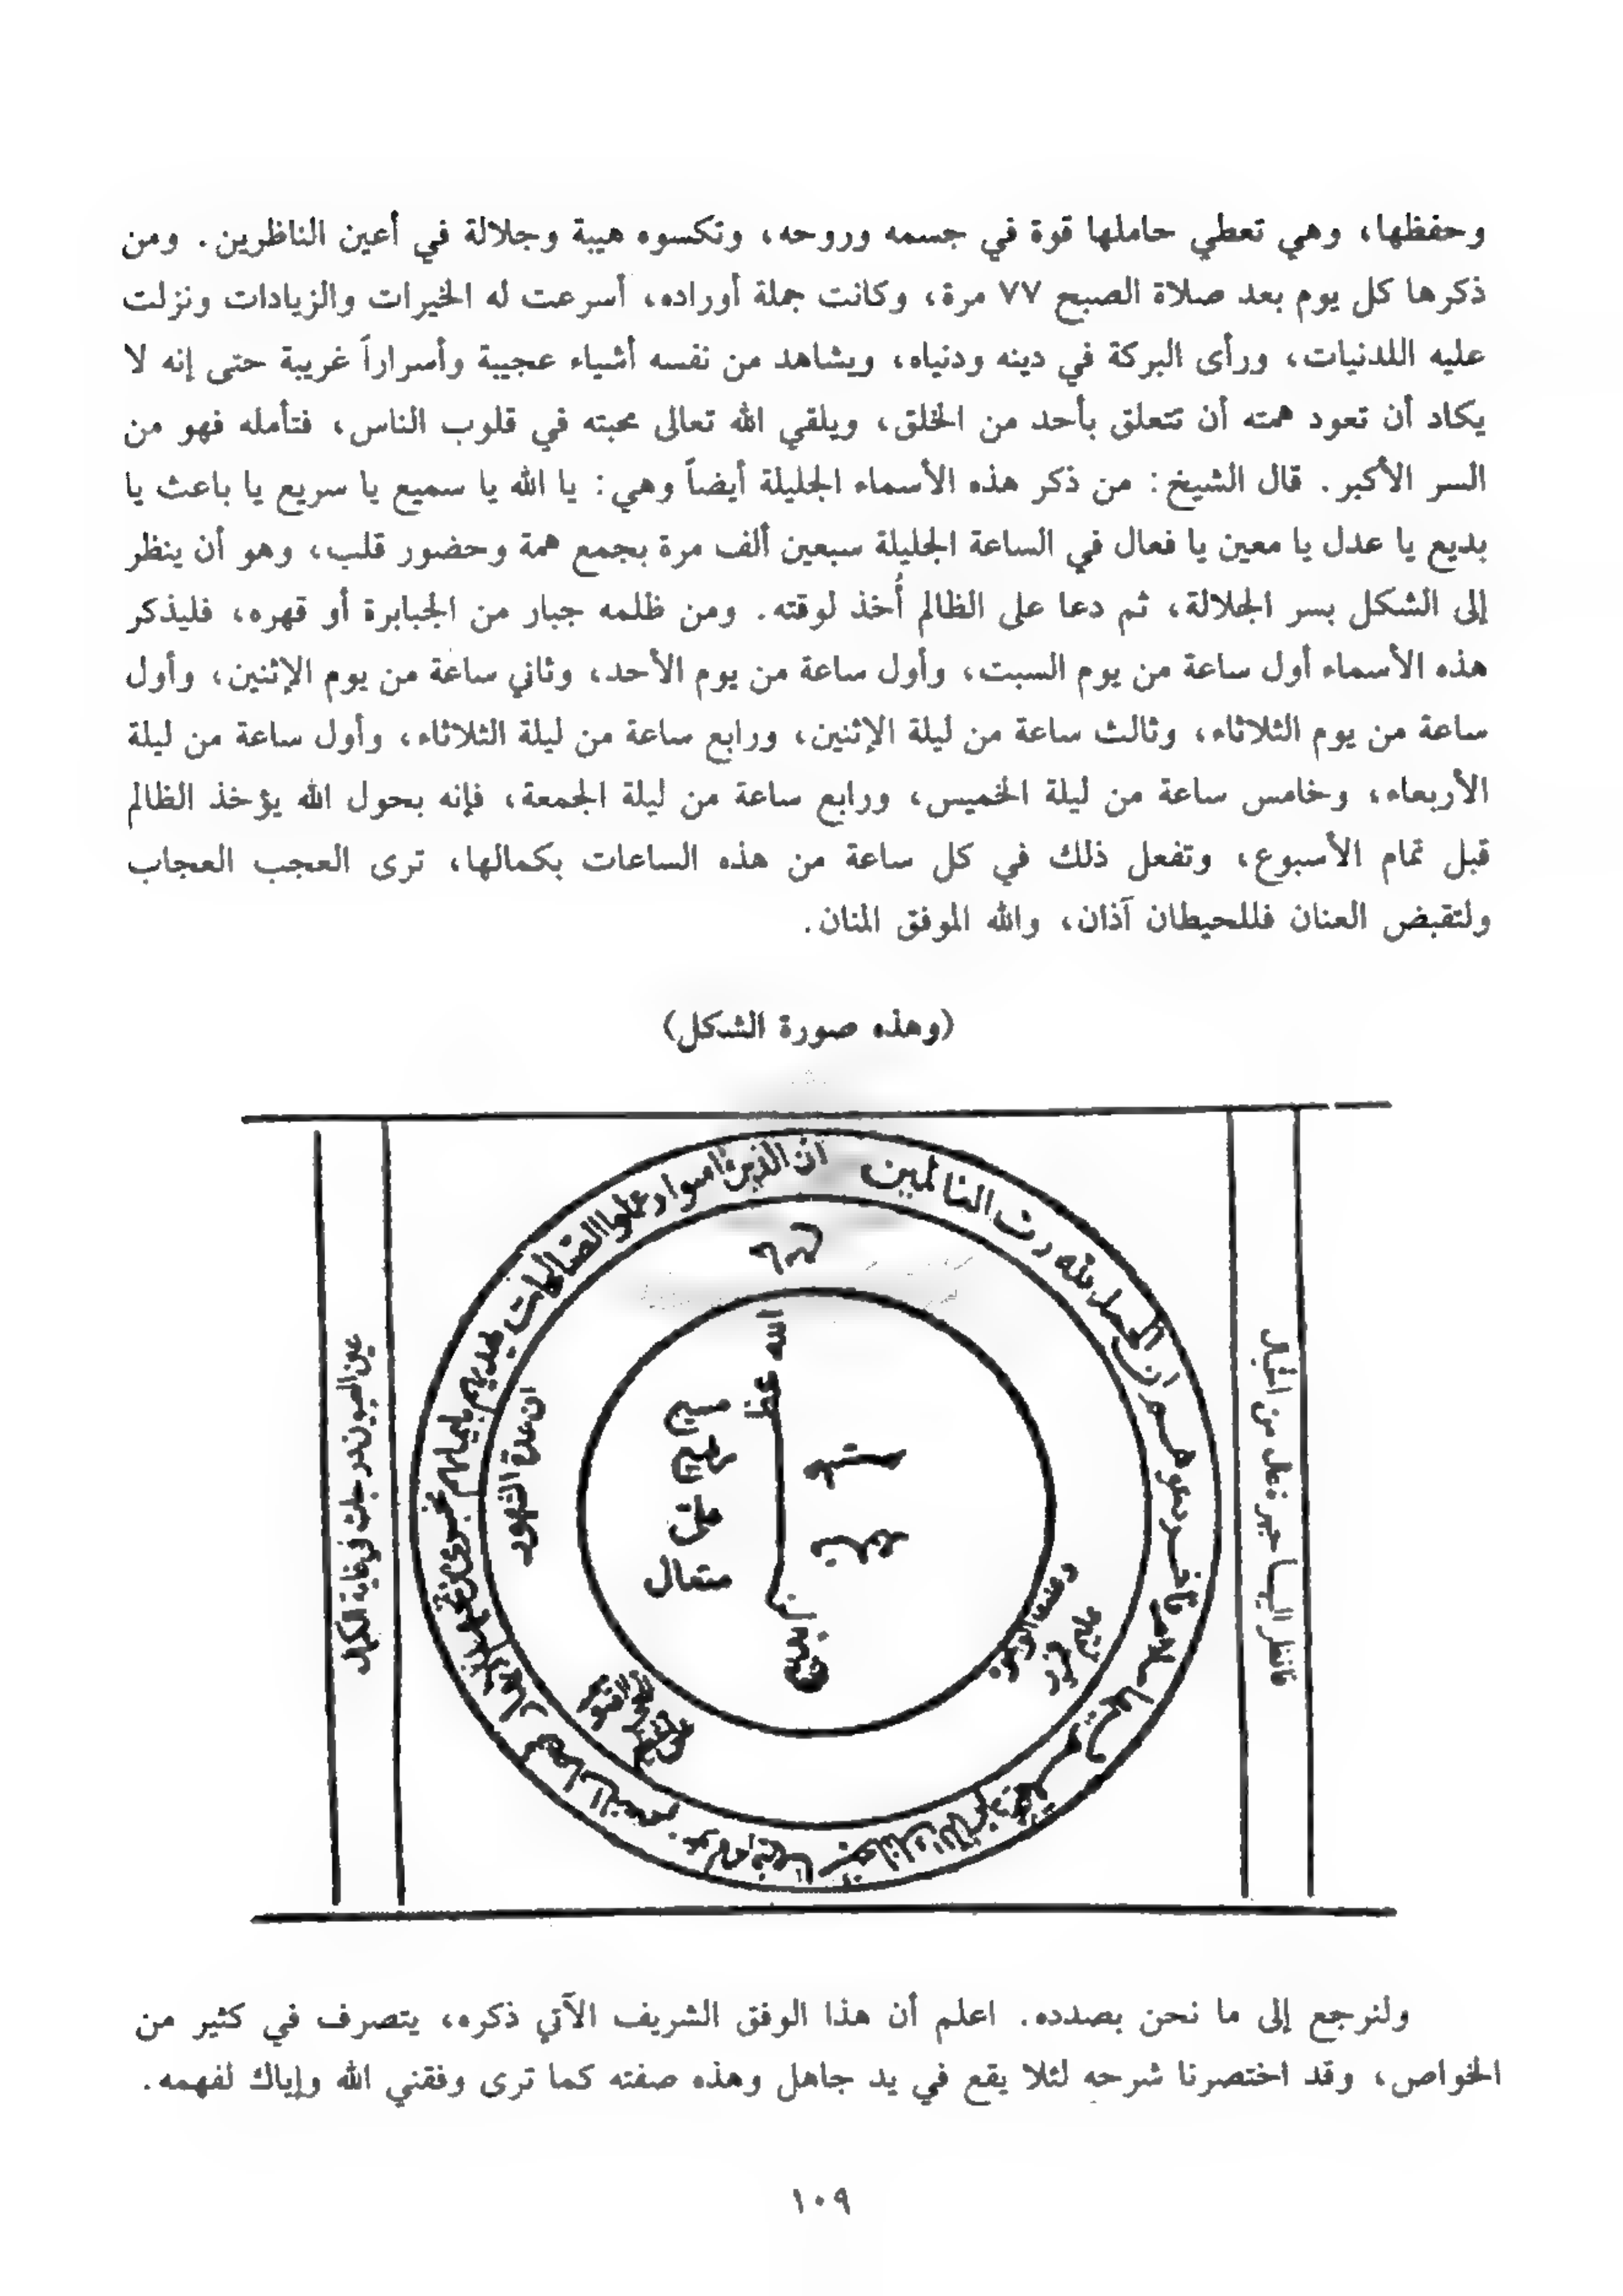 وحفظها، وهي تعطي حاملها قوة في جسمه وروحه، وتكسوه هيبة وجلالة في أعين الناظرين. ومن
ذكرها كل يوم بعد صلاة الصبح ٧٧ مرة، وكانت جملة أوراده، أسرعت له الخيرات والزيادات ونزلت
عليه اللدنيات، ورأى البركة في دينه ودنياه، ويشاهد من نفسه أشياء عجيبة وأسراراً غريبة حتى إنه لا
يكاد أن تعود همته أن تتعلق بأحد من الخلق، ويلقي الله تعالى محبته في قلوب الناس، فتأمله فهو من
السر الأكبر. قال الشيخ: من ذكر هذه الأسماء الجليلة أيضاً وهي: يا الله يا سميع يا سريع يا باعث يا
بديع يا عدل يا معين يا فعال في الساعة الجليلة سبعين ألف مرة بجمع همة وحضور قلب، وهو أن ينظر
إلى الشكل بسر الجلالة، ثم دعا على الظالم أُخذ لوقته. ومن ظلمه جبار من الجبابرة أو قهره، فليذكر
هذه الأسماء أول ساعة من يوم السبت، وأول ساعة من يوم الأحد، وثاني ساعة من يوم الإثنين، وأول
ساعة من يوم الثلاثاء، وثالث ساعة من ليلة الإثنين، ورابع ساعة من ليلة الثلاثاء، وأول ساعة من ليلة
الأربعاء، وخامس ساعة من ليلة الخميس، ورابع ساعة من ليلة الجمعة، فإنه بحول الله يؤخذ الظالم
قبل تمام الأسبوع، وتفعل ذلك في كل ساعة من هذه الساعات بكمالها، ترى العجب العجاب
ولتقبض العنان فللحيطان آذان، والله الموفق المنان.
(وهذه صورة الشكل)
ان الذين امنوا وعملوا الصالحات يهديهم ربهم بايمانهم تجري من تحتهم
وآخر دعواهم ان الحمد لله رب العالمين
ان عدة الشهور
الله
متعال
فانظر اليها من الجبال
ولنرجع إلى ما نحن بصدده. اعلم أن هذا الوفق الشريف الآتي ذكره، يتصرف في كثير من
الخواص، وقد اختصرنا شرحه لئلا يقع في يد جاهل وهذه صفته كما ترى وفقني الله وإياك لفهمه.
١٠٩